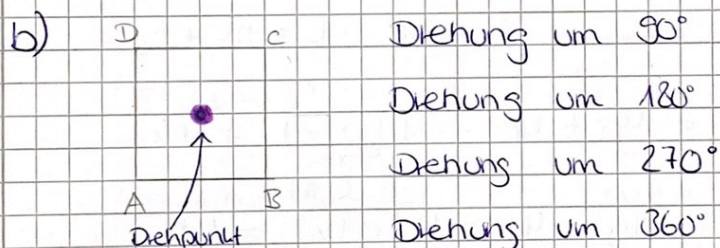 b)
D C
A B
Drehpunkt
Drehung um 90°
Drehung um 180°
Drehung um 270°
Drehung um 360°